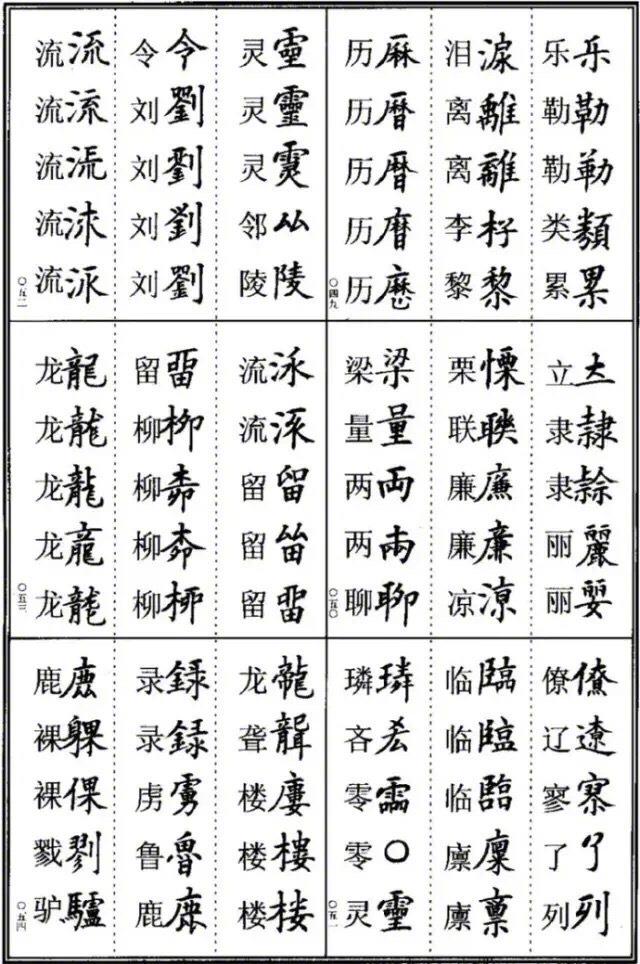 乐乐 勒勒 勒勒 类類 累累
泪淚 离離 离離 李杍 黎黎
历厤 历暦 历暦 历 历
〇四九
立 隶隷 隶 丽麗 丽
栗慄 联聨 廉廉 廉廉 凉凉
梁梁 量量 两両 两兩 聊聊
〇五〇
僚僚 辽遼 寥寮 了了 列列
临臨 临臨 临臨 廪廩 廪禀
璘璘 吝 零霝 零〇 灵靈
〇五一
灵靈 灵靈 灵 邻厸 陵陵
令令 刘劉 刘劉 刘劉 刘劉
流流 流流 流 流 流
〇五二
流 流 留留 留 留畱
留畱 柳柳 柳 柳 柳桺
龙龍 龙龍 龙龍 龙龍 龙龍
〇五三
龙龍 聋聾 楼廔 楼樓 楼楼
录録 录録 虏虜 鲁魯 鹿鹿
鹿鹿 裸躶 裸倮 戮剹 驴驢
〇五四